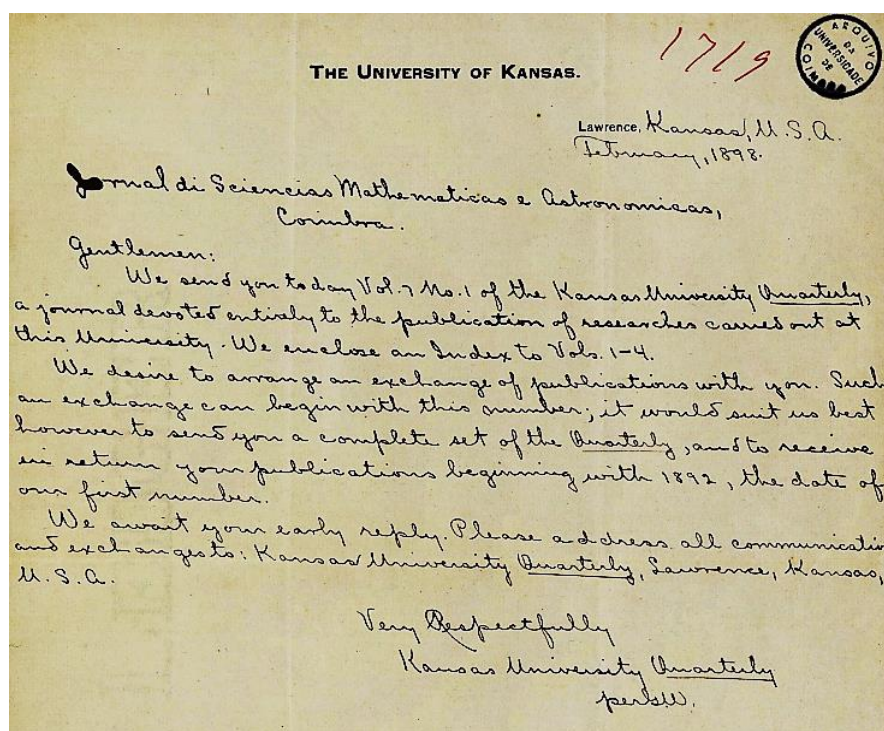 1719
ARQUIVO
DA
UNIVERSIDADE
DE
COIMBRA
THE UNIVERSITY OF KANSAS.
Lawrence, Kansas, U.S.A.
February, 1898.
Jornal di Sciencias Mathematicas e Astronomicas,
Coimbra.
Gentlemen:
We send you today Vol. 7 No. 1 of the Kansas University Quarterly,
a journal devoted entirely to the publication of researches carried out at
this University. We enclose an Index to Vols. 1-4.
We desire to arrange an exchange of publications with you. Such
an exchange can begin with this number; it would suit us best
however to send you a complete set of the Quarterly, and to receive
in return your publications beginning with 1892, the date of
our first number.
We await your early reply. Please address all communicatio
and exchanges to: Kansas University Quarterly, Lawrence, Kansas,
U.S.A.
Very Respectfully
Kansas University Quarterly
per